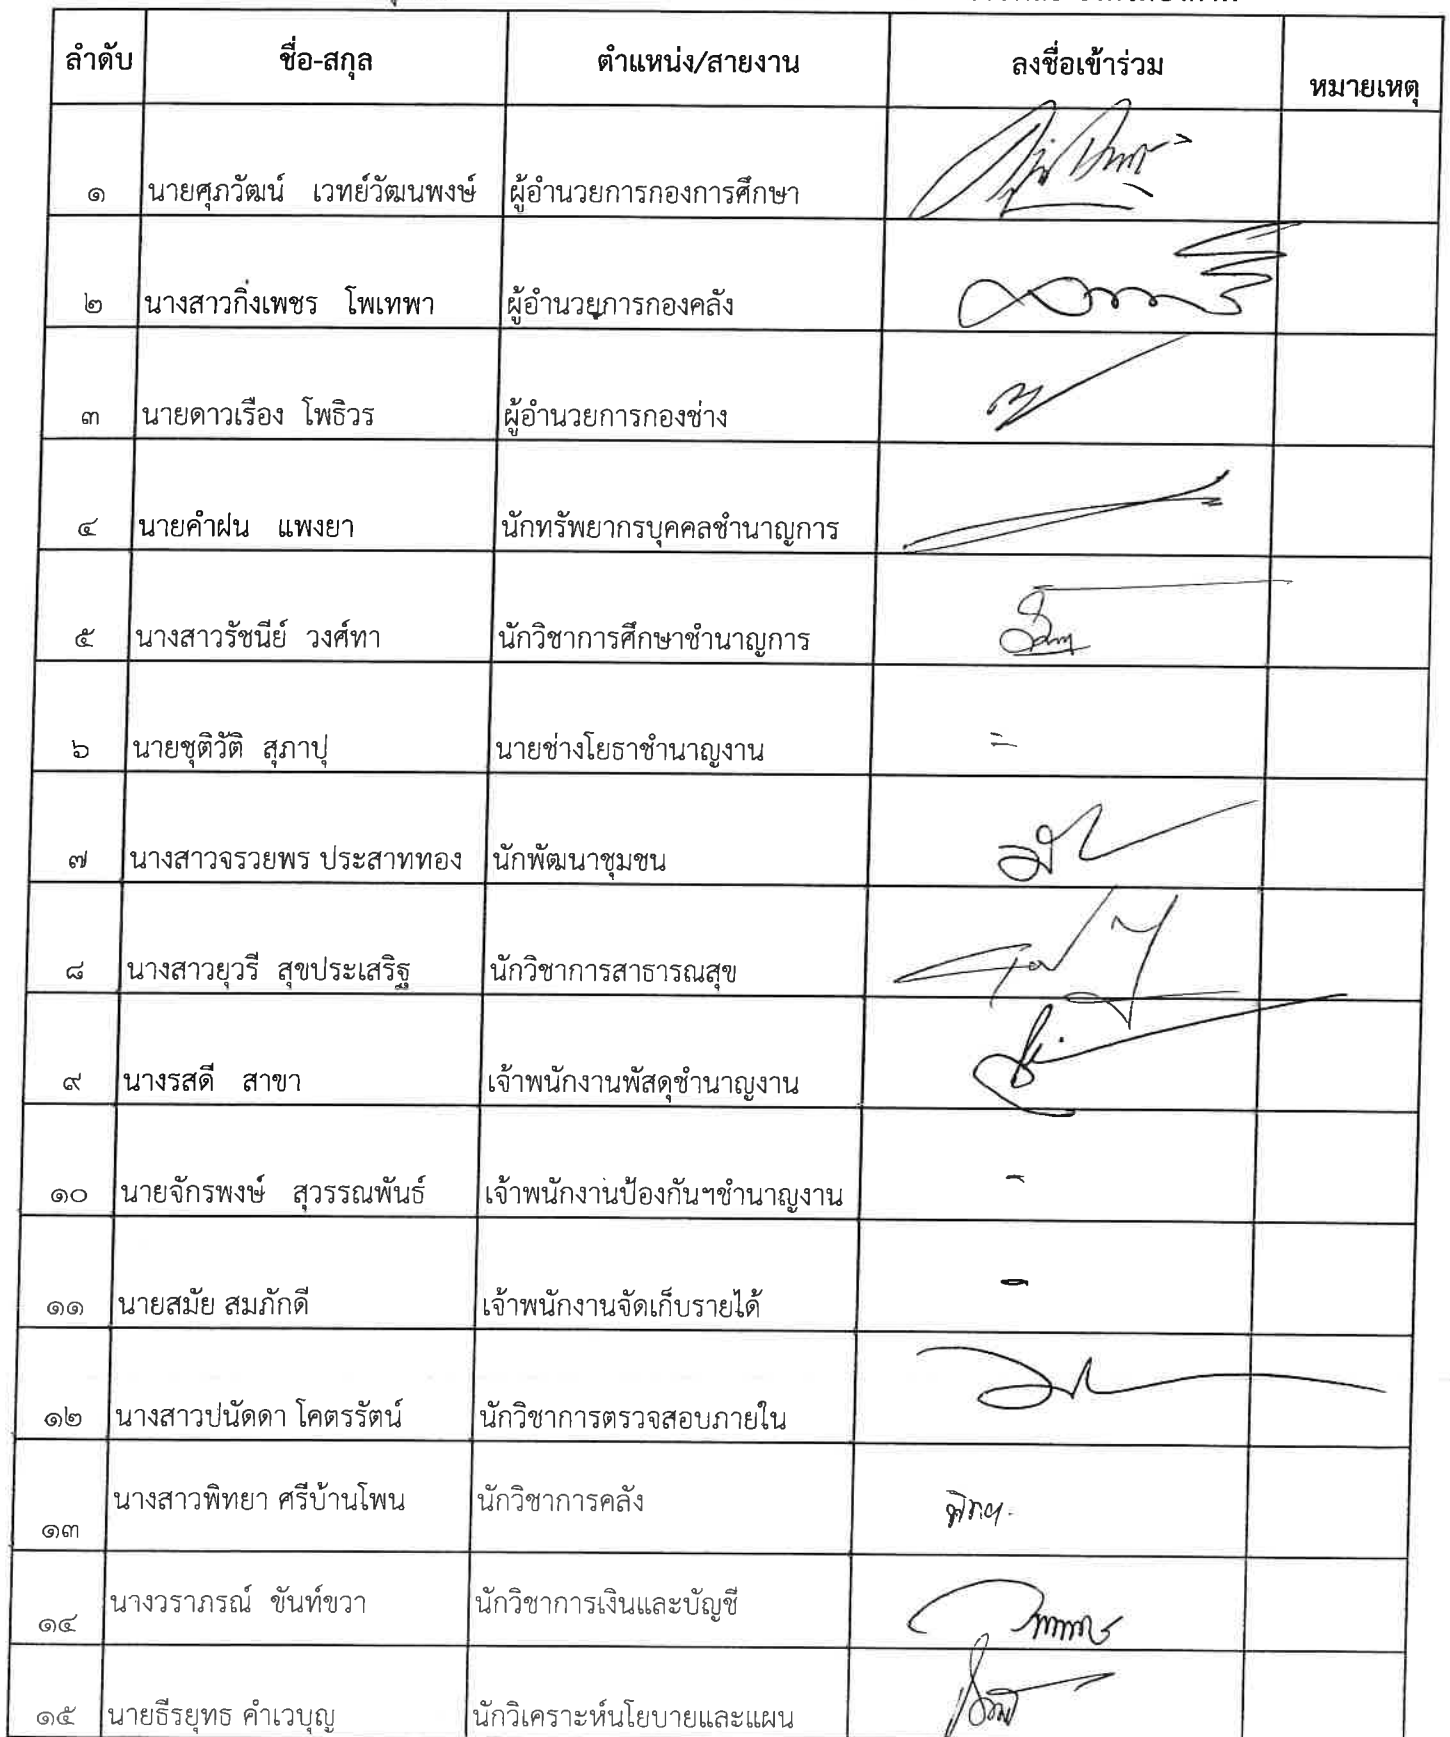 ลำดับ ชื่อ-สกุล ตำแหน่ง/สายงาน ลงชื่อเข้าร่วม หมายเหตุ
๑ นายศุภวัฒน์ เวทย์วัฒนพงษ์ ผู้อำนวยการกองการศึกษา
๒ นางสาวกิ่งเพชร โพเทพา ผู้อำนวยการกองคลัง
๓ นายดาวเรือง โพธิวร ผู้อำนวยการกองช่าง
๔ นายคำฝน แพงยา นักทรัพยากรบุคคลชำนาญการ
๕ นางสาวรัชนีย์ วงศ์ทา นักวิชาการศึกษาชำนาญการ
๖ นายชุติวัติ สุภาปุ นายช่างโยธาชำนาญงาน =
๗ นางสาวจรวยพร ประสาททอง นักพัฒนาชุมชน
๘ นางสาวยุวรี สุขประเสริฐ นักวิชาการสาธารณสุข
๙ นางรสดี สาขา เจ้าพนักงานพัสดุชำนาญงาน
๑๐ นายจักรพงษ์ สุวรรณพันธ์ เจ้าพนักงานป้องกันฯชำนาญงาน -
๑๑ นายสมัย สมภักดี เจ้าพนักงานจัดเก็บรายได้ -
๑๒ นางสาวปนัดดา โคตรรัตน์ นักวิชาการตรวจสอบภายใน
๑๓ นางสาวพิทยา ศรีบ้านโพน นักวิชาการคลัง
๑๔ นางวราภรณ์ ขันท์ขวา นักวิชาการเงินและบัญชี
๑๕ นายธีรยุทธ คำเวบุญ นักวิเคราะห์นโยบายและแผน